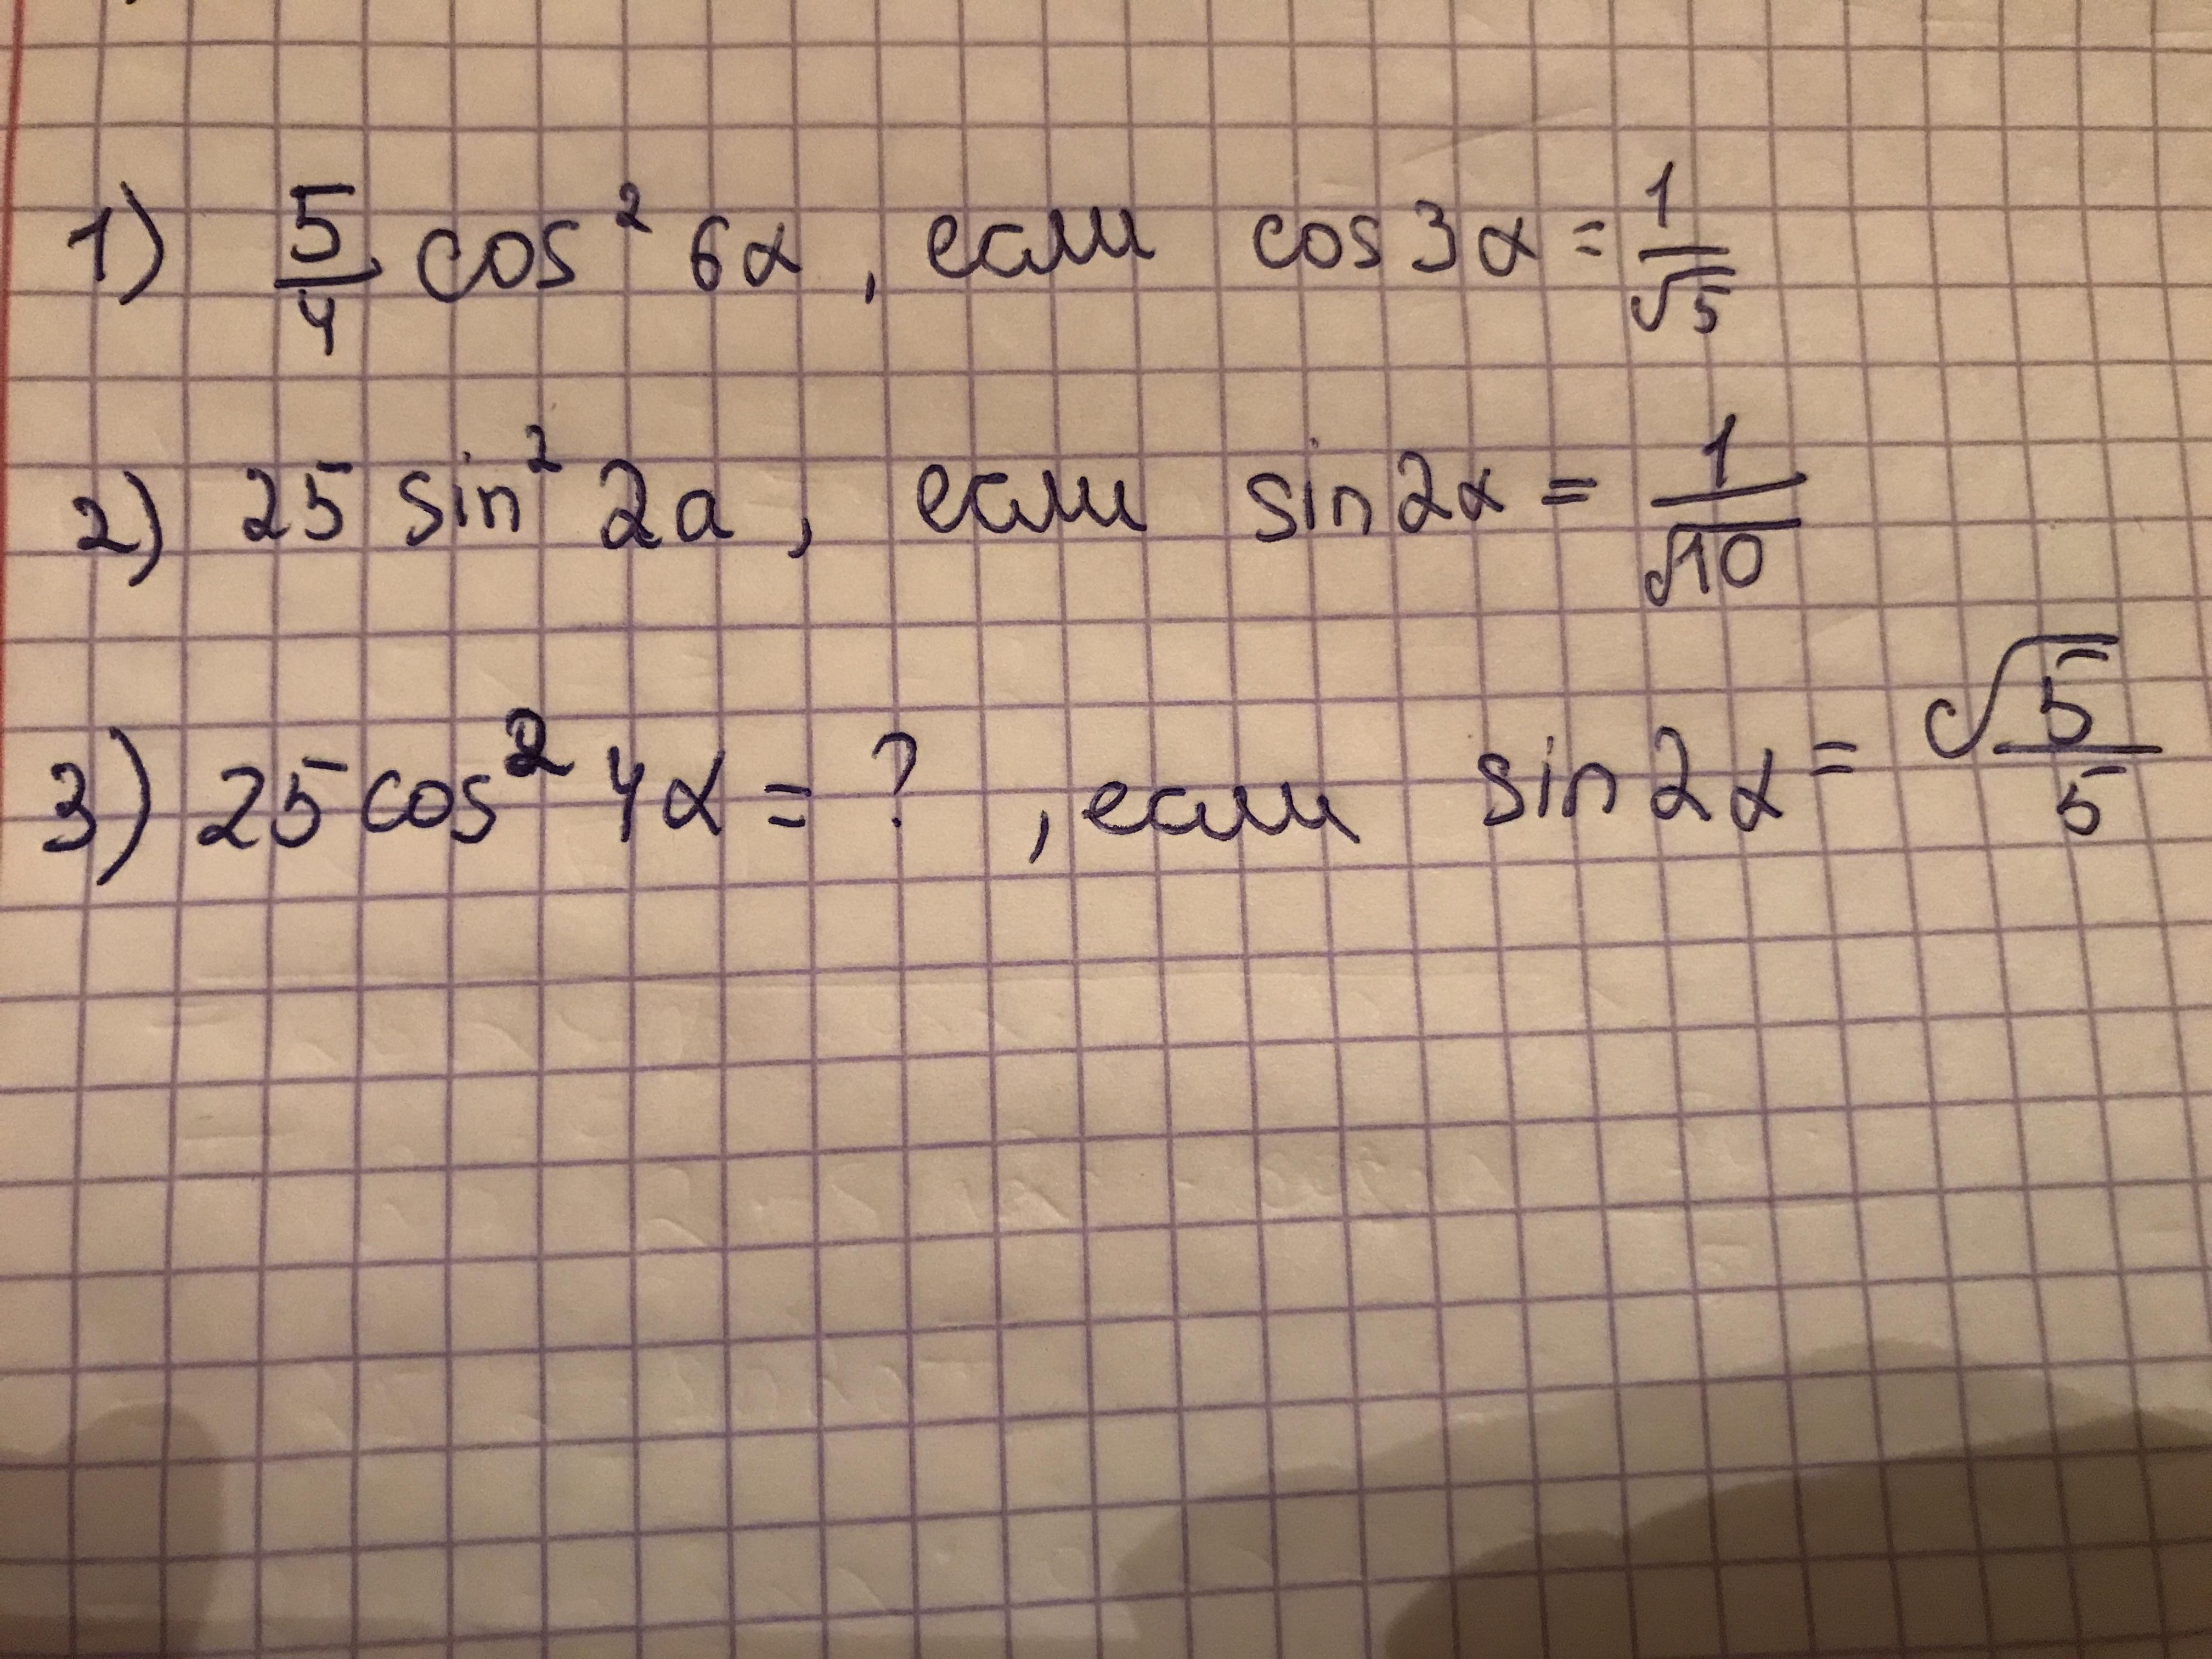 1) 5/4 cos² 6α , если cos 3α = 1/√5
2) 25 sin² 2a , если sin 2α = 1/√10
3) 25 cos² 4α = ? , если sin 2α = √5/5